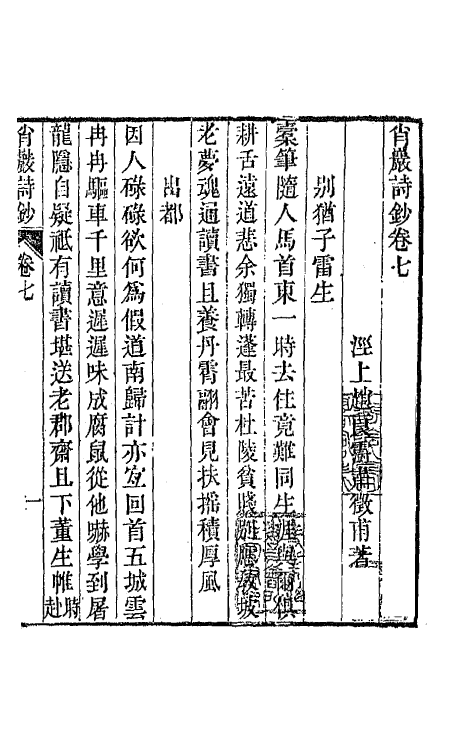 肖巖詩鈔卷七
涇上趙良𩆜肅徵甫著
別猶子雷生
橐筆隨人馬首東一時去住竟難同生涯與爾俱
耕舌遠道悲余獨轉蓬最苦杜陵貧賤雖應憐坡
老夢魂通讀書且養丹霄翮會見扶搖積厚風
出都
因人碌碌欲何為假道南歸計亦宜回首五城雲
冉冉驅車千里意遲遲味成腐鼠從他嚇學到屠
龍隱自疑祗有讀書堪送老郡齋且下董生帷時赴
肖巖詩鈔 卷七 一